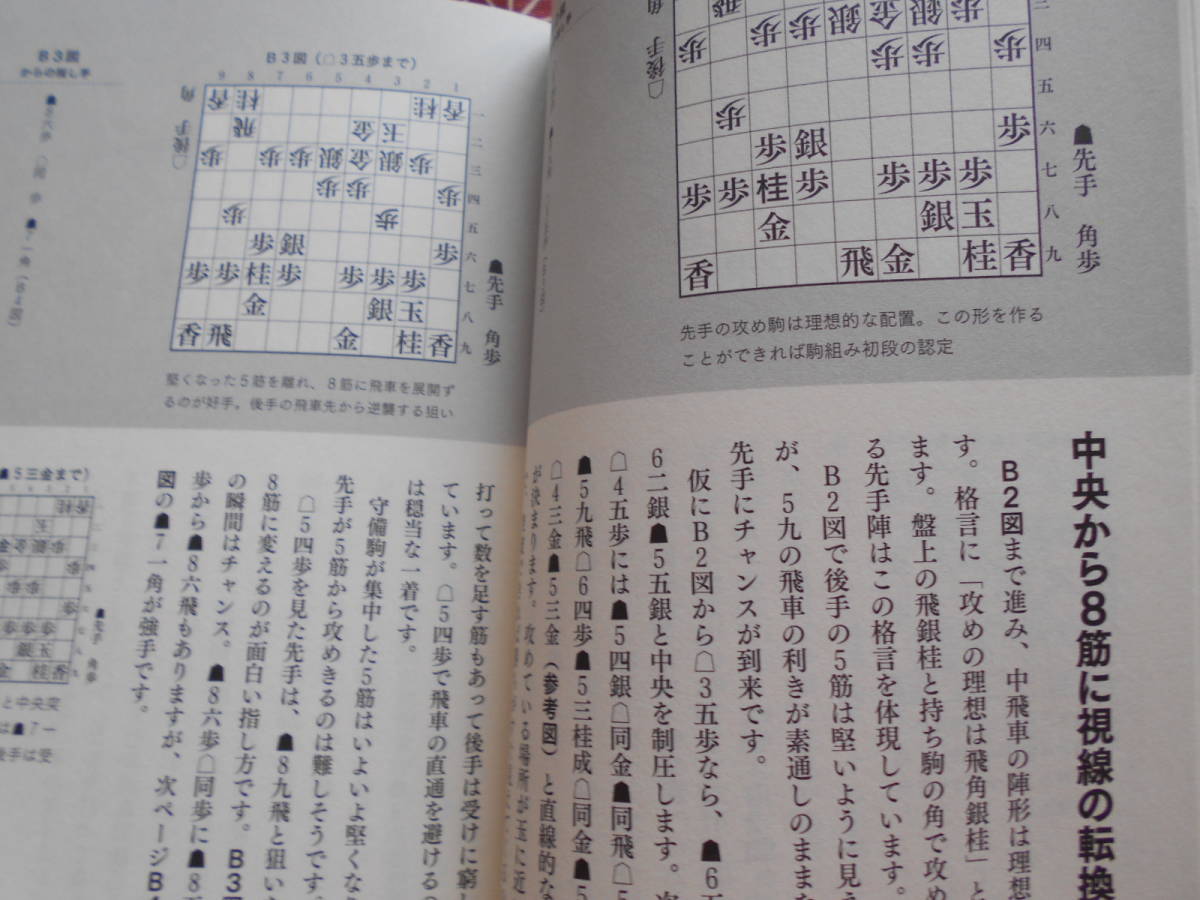 中央から8筋に視線の転換
B2図まで進み、中飛車の陣形は理想
す。格言に「攻めの理想は飛角銀桂」と
ます。盤上の飛銀桂と持ち駒の角で攻め
る先手陣はこの格言を体現しています。
B2図で後手の5筋は堅いように見え
が、5九の飛車の利きが素通しのまま
先手にチャンスが到来です。
仮にB2図から☖3五歩なら、☗6五
6二銀☗5五銀と中央を制圧します。次
☖4五歩には☗5四銀☖同金☗同飛☖5
☗5九飛☖6四歩☗5三桂成☖同金☗5
☖4三金☗5三金（参考図）と直線的な
が決まります。攻めている場所が玉に近
先手の攻め駒は理想的な配置。この形を作る
ことができれば駒組み初段の認定
☗先手 角歩
☖後手 角
四
五
六
七
八
九
歩 歩 歩 銀 金 銀 歩
歩 歩 歩 歩
歩
歩 銀 歩
歩 歩 桂 歩 歩 歩 歩
金 銀 玉
香 飛 金 桂 香
B3図
からの指し手
B3図（☖3五歩まで）
9 8 7 6 5 4 3 2 1
香 桂 桂 香 一
飛 金 玉 二
歩 歩 歩 銀 金 銀 歩 三
歩 歩 歩 四
歩 歩 五
歩 銀 歩 六
歩 歩 桂 歩 歩 歩 歩 七
金 銀 玉 八
香 飛 金 桂 香 九
☖後手 角
☗先手 角歩
堅くなった5筋を離れ、8筋に飛車を展開す
るのが好手。後手の飛車先から逆襲する狙い
打って数を足す筋もあって後手は受けに窮し
ています。☖5四歩で飛車の直通を避ける
は穏当な一着です。
守備駒が集中した5筋はいよいよ堅くな
先手が5筋から攻めきるのは難しそうです。
☖5四歩を見た先手は、☗8九飛と狙い
8筋に変えるのが面白い指し方です。B3
の瞬間はチャンス。☗8六歩☖同歩に☗8
歩から☗8六飛もありますが、次ページB
図の☗7一角が強手です。
☗5三金まで）
☗先手 角歩
と中央突
は☗7一
後手は受